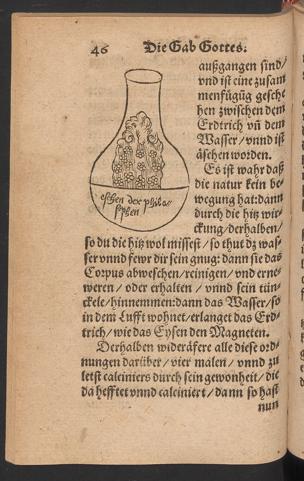 46 Die Gab Gottes.
außgangen sind/
vnd ist eine zusam
menfügũg gesche
hen zwischen dem
Erdtrich vñ dem
Wasser/ vnnd ist
äschen worden.
Es ist wahr daß
die natur kein be
wegung hat: dann
durch die hitz wir-
ckung/ derhalben/
eschen der philo-
sophen
so du die hitz wol missest/ so thut dz was-
ser vnnd fewr dir sein gnug: dann sie das
Corpus abweschen/ reinigen/ vnd erne-
weren/ oder erhalten/ vnnd sein tün-
ckele/ hinnemmen: dann das Wasser/ so
in dem Lufft wohnet/ erlanget das Erd-
trich/ wie das Eysen den Magneten.
Derhalben wideräfere alle diese ord-
nungen darüber/ vier malen/ vnnd zu
letst calciniers durch sein gewonheit/ die
da hefftet vnnd calciniert/ dann so hast
nun